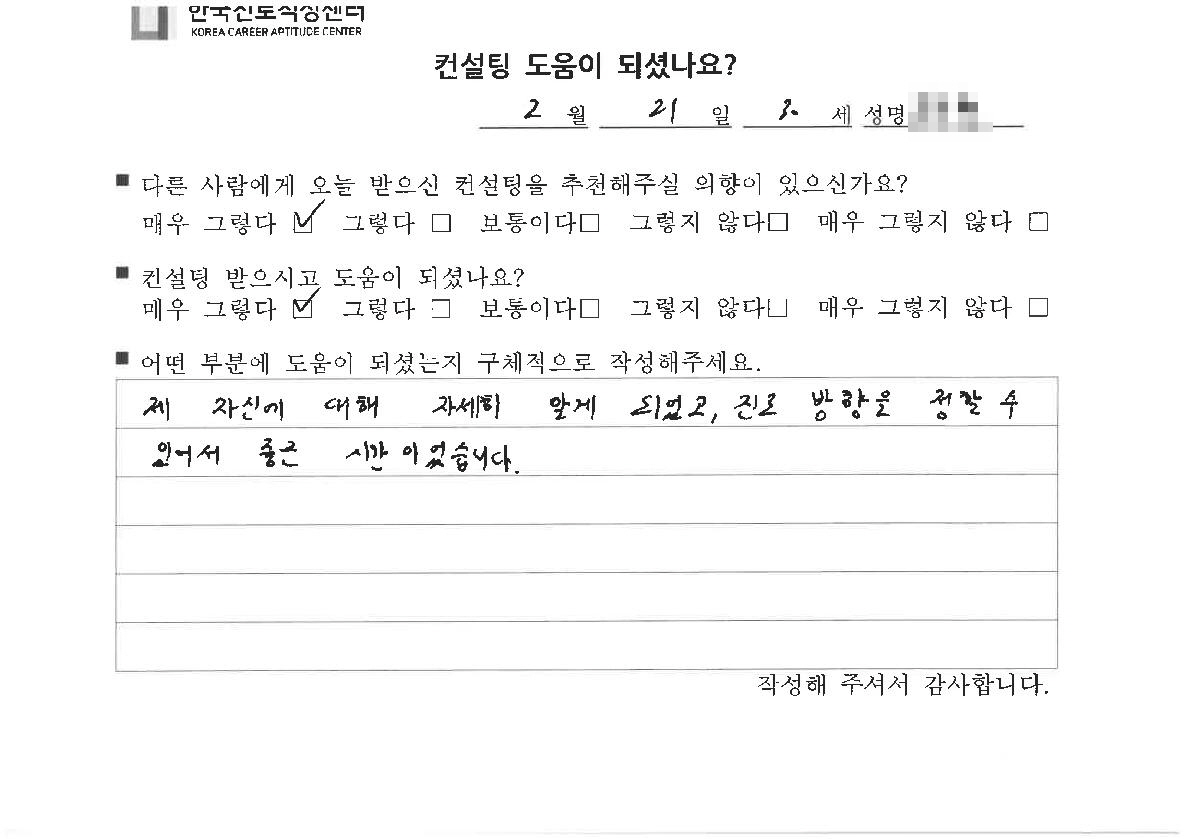 한국진로적성센터
KOREA CAREER APTITUDE CENTER
컨설팅 도움이 되셨나요?
2 월 21 일 세 성명
■ 다른 사람에게 오늘 받으신 컨설팅을 추천해주실 의향이 있으신가요?
매우 그렇다 ☑ 그렇다 □ 보통이다□ 그렇지 않다□ 매우 그렇지 않다 □
■ 컨설팅 받으시고 도움이 되셨나요?
매우 그렇다 ☑ 그렇다 □ 보통이다□ 그렇지 않다□ 매우 그렇지 않다 □
■ 어떤 부분에 도움이 되셨는지 구체적으로 작성해주세요.
제 자신에 대해 자세히 알게 되었고, 진로 방향을 정할 수
있어서 좋은 시간이었습니다.
작성해 주셔서 감사합니다.